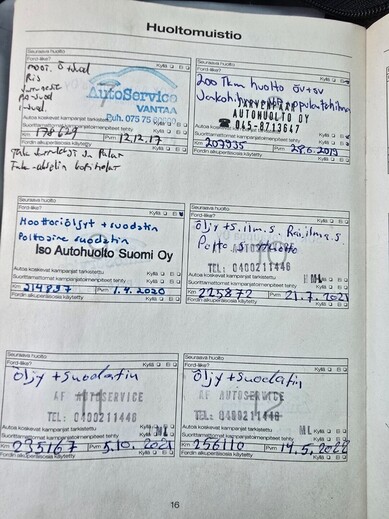 Huoltomuistio
Seuraava huolto
Ford-liike?
Kyllä Ei
moot. öljyt
AutoService
VANTAA
Puh. 075 75
Autoa koskevat kampanjat tarkistettu Kyllä Ei
Suorittamattomat kampanjatoimenpiteet tehty Kyllä
Km 178629 Pvm 12.12.17
Fordin alkuperäisosia käytetty
Seuraava huolto
Ford-liike? Kyllä Ei
200 Tkm huolto öv+sv
JÄRVENPÄÄ
AUTOHUOLTO OY
☎ 045-8713647
Autoa koskevat kampanjat tarkistettu
Suorittamattomat kampanjatoimenpiteet tehty
Km 207935 Pvm 28.6.2019
Fordin alkuperäisosia käytetty Kyllä Ei
Seuraava huolto
Ford-liike? Kyllä Ei
Moottoriöljyt + suodatin
Polttoaine suodatin
Iso Autohuolto Suomi Oy
Autoa koskevat kampanjat tarkistettu Kyllä Ei
Suorittamattomat kampanjatoimenpiteet tehty Kyllä Ei
Km 214897 Pvm 1.4.2020
Fordin alkuperäisosia käytetty Kyllä Ei
Seuraava huolto
Ford-liike? Kyllä Ei
Öljy +s. ilm.s. Rai.ilma.s.
Polto suodatin
TEL: 0400211446
Autoa koskevat kampanjat tarkistettu Kyllä Ei
Suorittamattomat kampanjatoimenpiteet tehty Kyllä
Km 225872 Pvm 21.7.2021
Fordin alkuperäisosia käytetty Kyllä Ei
Seuraava huolto
Ford-liike? Kyllä Ei
Öljy + suodatin
AF AUTOSERVICE
TEL: 0400211446
Autoa koskevat kampanjat tarkistettu Kyllä
Suorittamattomat kampanjatoimenpiteet tehty Kyllä
Km 235167 Pvm 5.10.2021
Fordin alkuperäisosia käytetty Kyllä Ei
Seuraava huolto
Ford-liike? Kyllä Ei
Öljy + suodatin
AF AUTOSERVICE
TEL: 0400211446
Autoa koskevat kampanjat tarkistettu ML
Suorittamattomat kampanjatoimenpiteet tehty Kyllä
Km 256110 Pvm 14.5.2022
Fordin alkuperäisosia käytetty Kyllä Ei
16